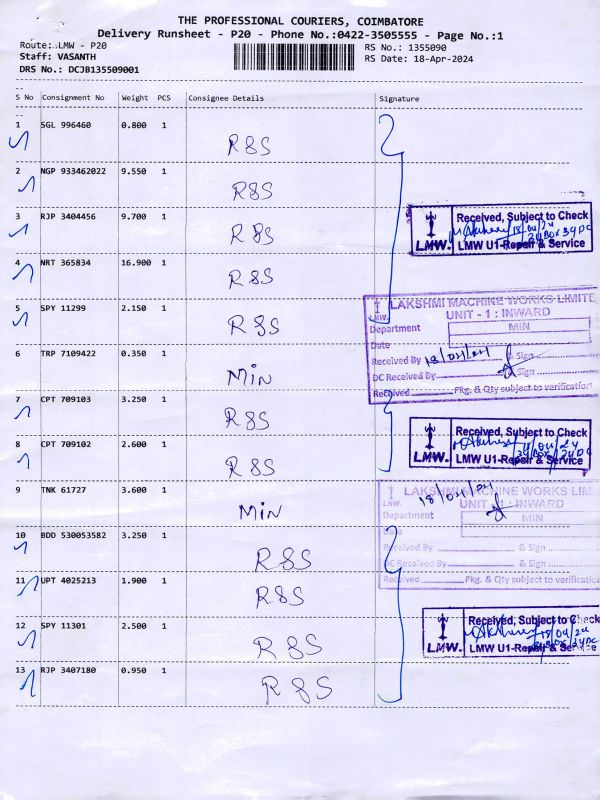 THE PROFESSIONAL COURIERS, COIMBATORE
Delivery Runsheet - P20 - Phone No.:0422-3505555 - Page No.:1
Route: LMW - P20
RS No.: 1355090
Staff: VASANTH
RS Date: 18-Apr-2024
DRS No.: DCJB135509001
S No Consignment No Weight PCS Consignee Details Signature
1 SGL 996460 0.800 1 R&S
2 NGP 933462022 9.550 1 R&S
3 RJP 3404456 9.700 1 R&S
Received, Subject to Check
18/04/24
LMW. LMW U1-Repair & Service
4 NRT 365834 16.900 1 R&S
5 SPY 11299 2.150 1 R&S
LAKSHMI MACHINE WORKS LIMITE
LMW. UNIT - 1 : INWARD
Department MIN
Date
Received By 18/04/24 & Sign
DC Received By & Sign
Received Pkg. & Qty subject to verification
6 TRP 7109422 0.350 1 MIN
7 CPT 709103 3.250 1 R&S
Received, Subject to Check
18/04/24
LMW. LMW U1-Repair & Service
8 CPT 709102 2.600 1 R&S
9 TNK 61727 3.600 1 MIN
LAKSHMI MACHINE WORKS LIM
18/04/24
LMW. UNIT - 1 : INWARD
Department MIN
Date
Received By & Sign
DC Received By & Sign
Received Pkg. & Qty subject to verificatio
10 BDD 530053582 3.250 1 R&S
11 UPT 4025213 1.900 1 R&S
12 SPY 11301 2.500 1 R&S
Received, Subject to Check
18/04/24
LMW. LMW U1-Repair & Service
13 RJP 3407180 0.950 1 R&S